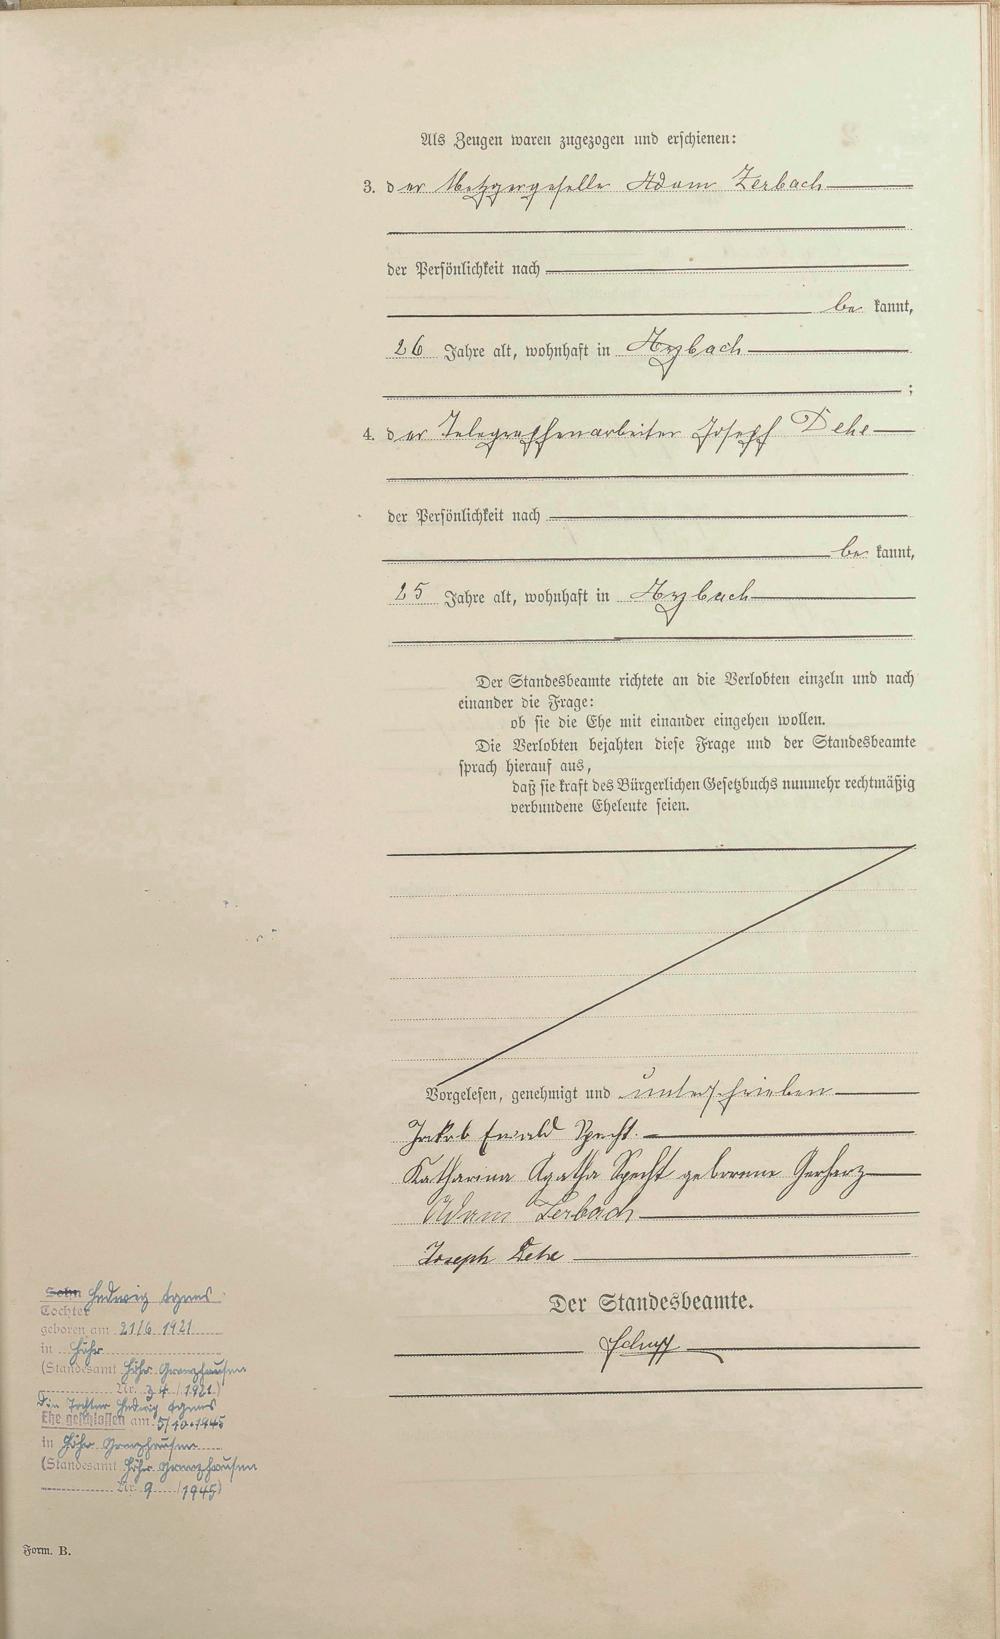 Als Zeugen waren zugezogen und erschienen:
3. der Metzgergeselle Adam Zerbach
der Persönlichkeit nach
be kannt,
26 Jahre alt, wohnhaft in Arzbach
;
4. der Telegraphenarbeiter Joseph Dehe
der Persönlichkeit nach
be kannt,
25 Jahre alt, wohnhaft in Arzbach
Der Standesbeamte richtete an die Verlobten einzeln und nach
einander die Frage:
ob sie die Ehe mit einander eingehen wollen.
Die Verlobten bejahten diese Frage und der Standesbeamte
sprach hierauf aus,
daß sie kraft des Bürgerlichen Gesetzbuchs nunmehr rechtmäßig
verbundene Eheleute seien.
Vorgelesen, genehmigt und unterschrieben
Jakob Ewald Specht.
Katharina Agatha Specht geborene Gerharz
Adam Zerbach
Joseph Dehe
Der Standesbeamte.
Schupp
Sohn Hedwig Agnes
Tochter
geboren am 21/6 1921
in Höhr
(Standesamt Höhr-Grenzhausen
Nr. 34 / 1921)
Die Tochter Hedwig Agnes
Ehe geschlossen am 5/10.1945
in Höhr Grenzhausen
(Standesamt Höhr Grenzhausen
Nr. 9 /1945)
Form. B.